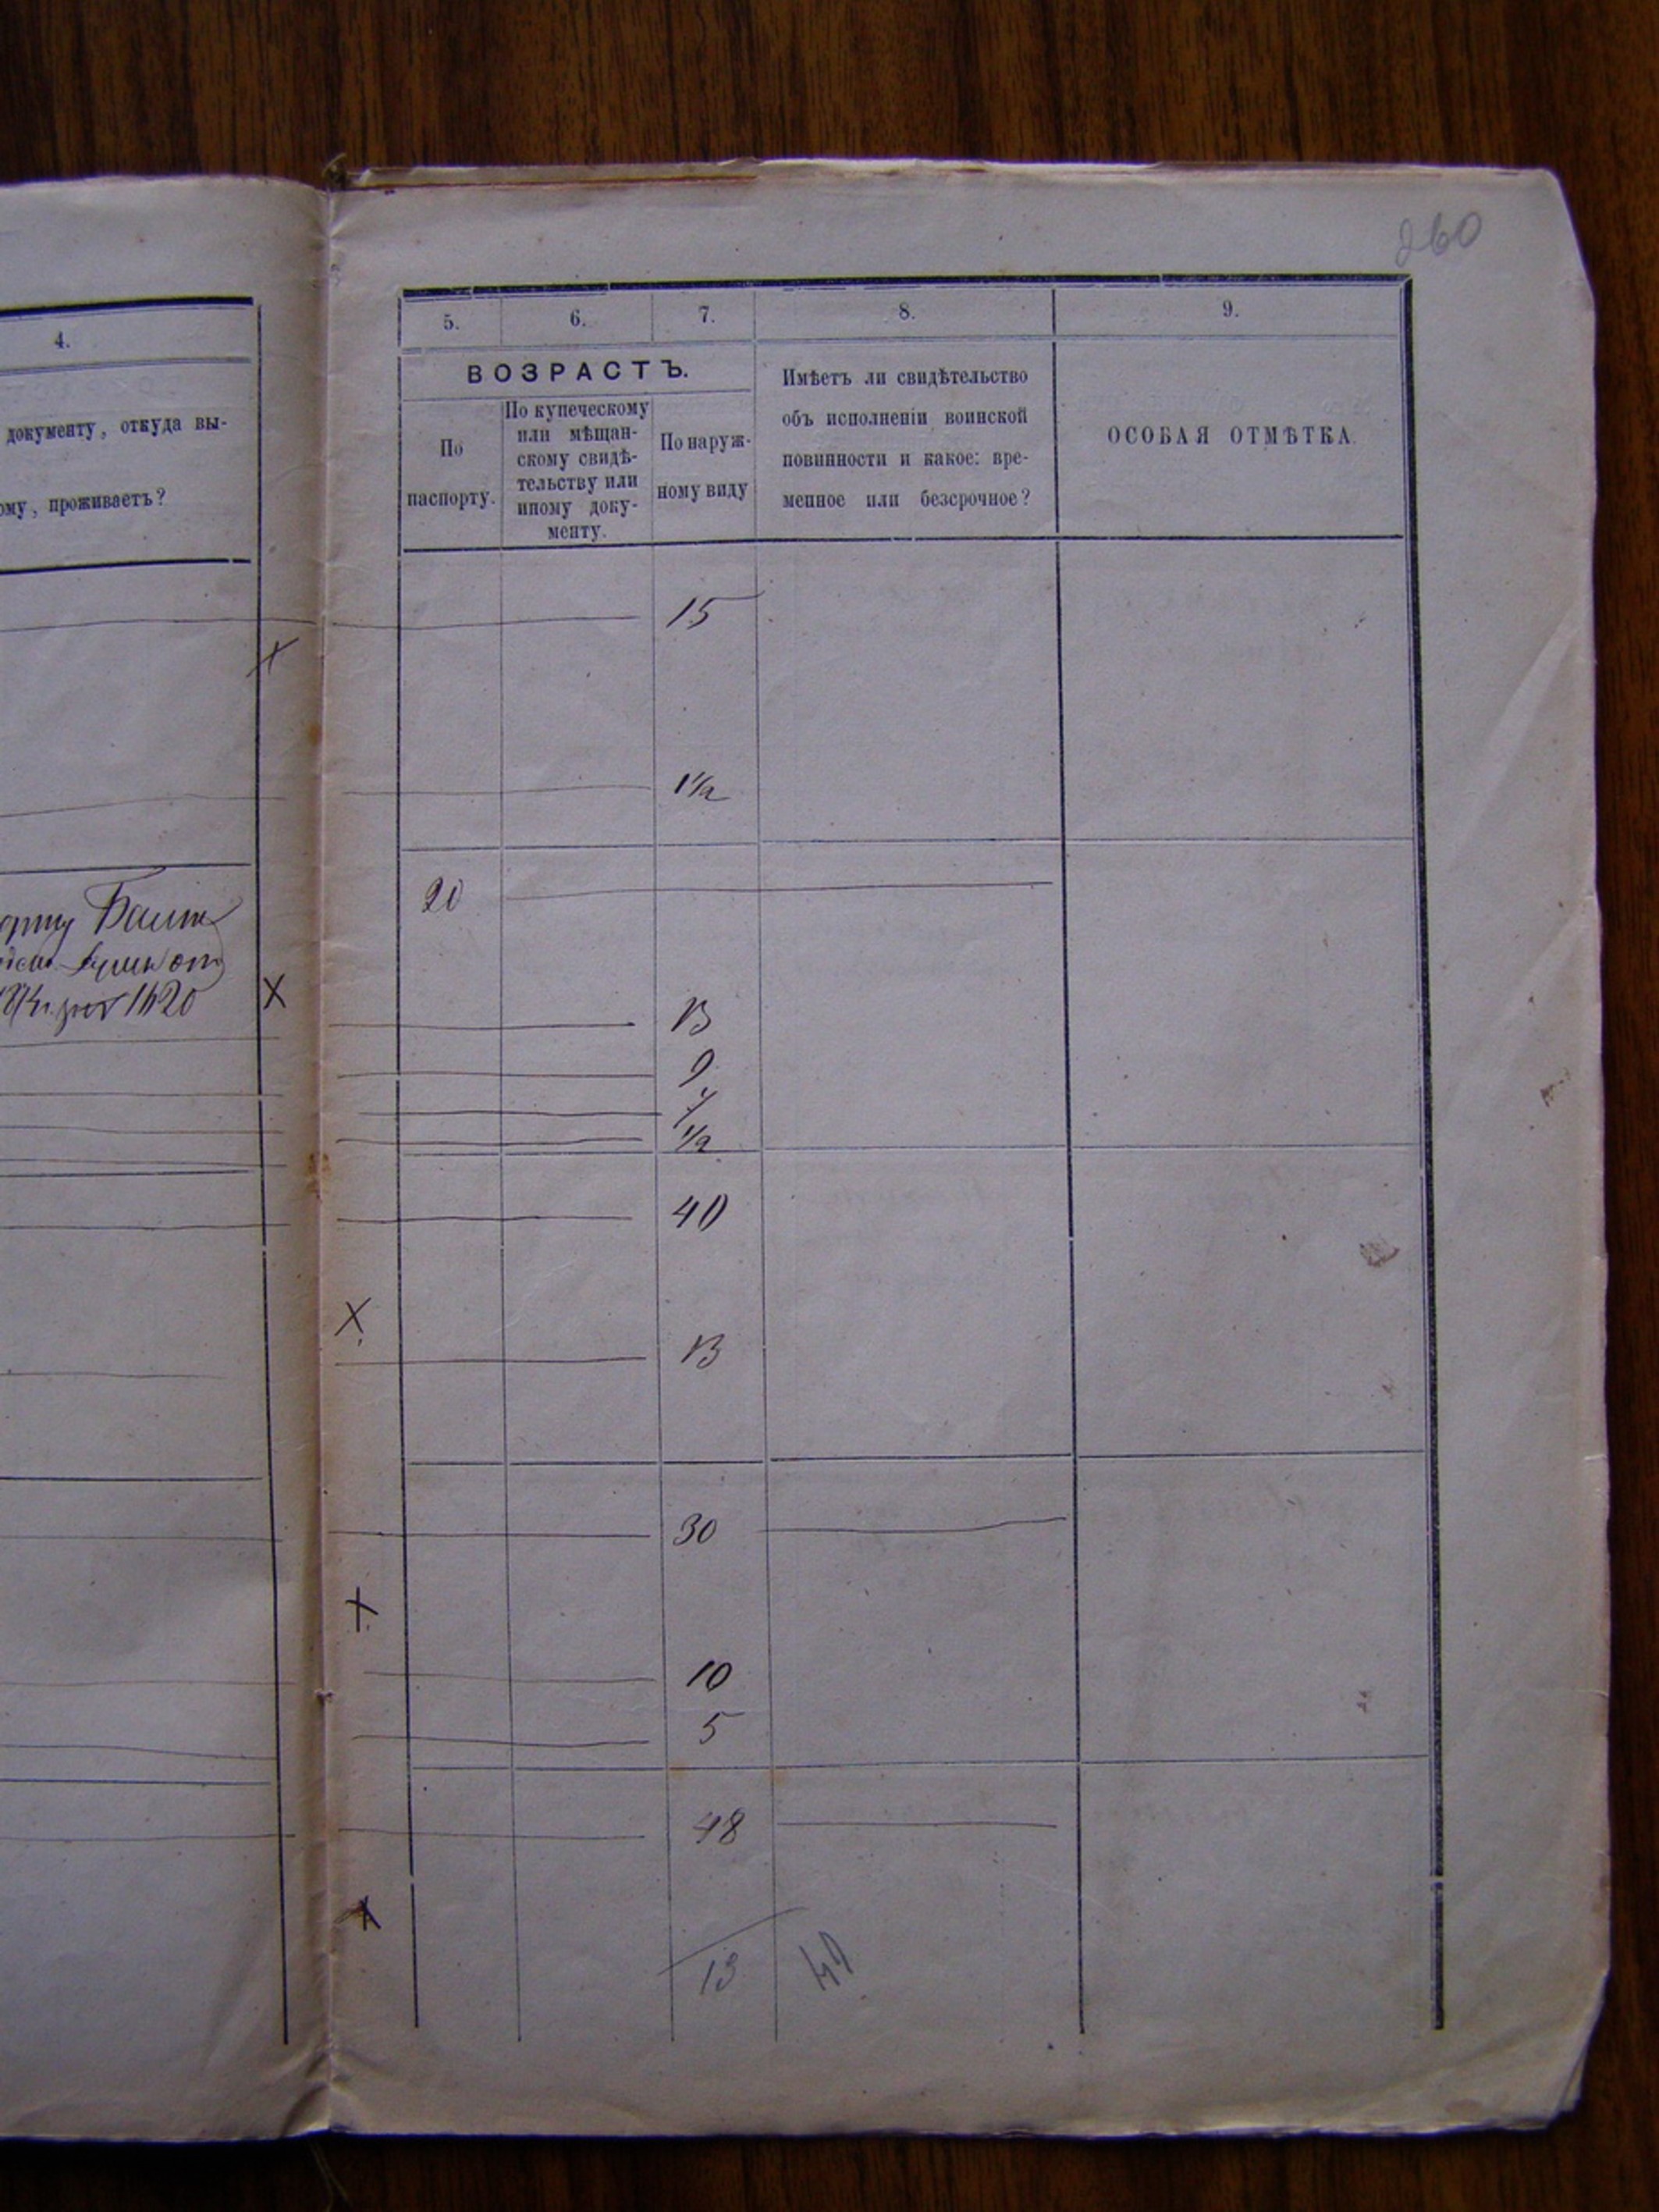 260
4.
документу, откуда вы-
ому, проживаетъ?
5. 6. 7. 8. 9.
ВОЗРАСТЪ.
По
паспорту.
По купеческому
или мѣщан-
скому свидѣ-
тельству или
иному доку-
менту.
По наруж-
ному виду
Имѣетъ ли свидѣтельство
объ исполненіи воинской
повинности и какое: вре-
менное или безсрочное?
ОСОБАЯ ОТМѢТКА.
15
1 1/2
20
13
9
1/2
40
13
30
10
5
48
13